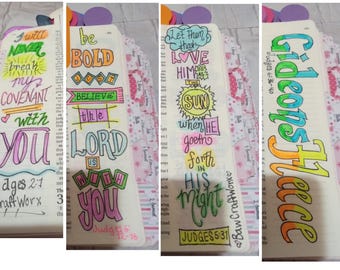 I will
NEVER
break
my
COVENANT
with
YOU
dges 2:1
be
BOLD
BELIEVE
the
LORD
is
WITH
YOU
Judges 6
12-16
Let them
that
LOVE
HIM
SUN
when HE
goeth
forth
in
HIS
Might
JUDGES 5:31
@BawCraftWorx
Gideons
Fleece